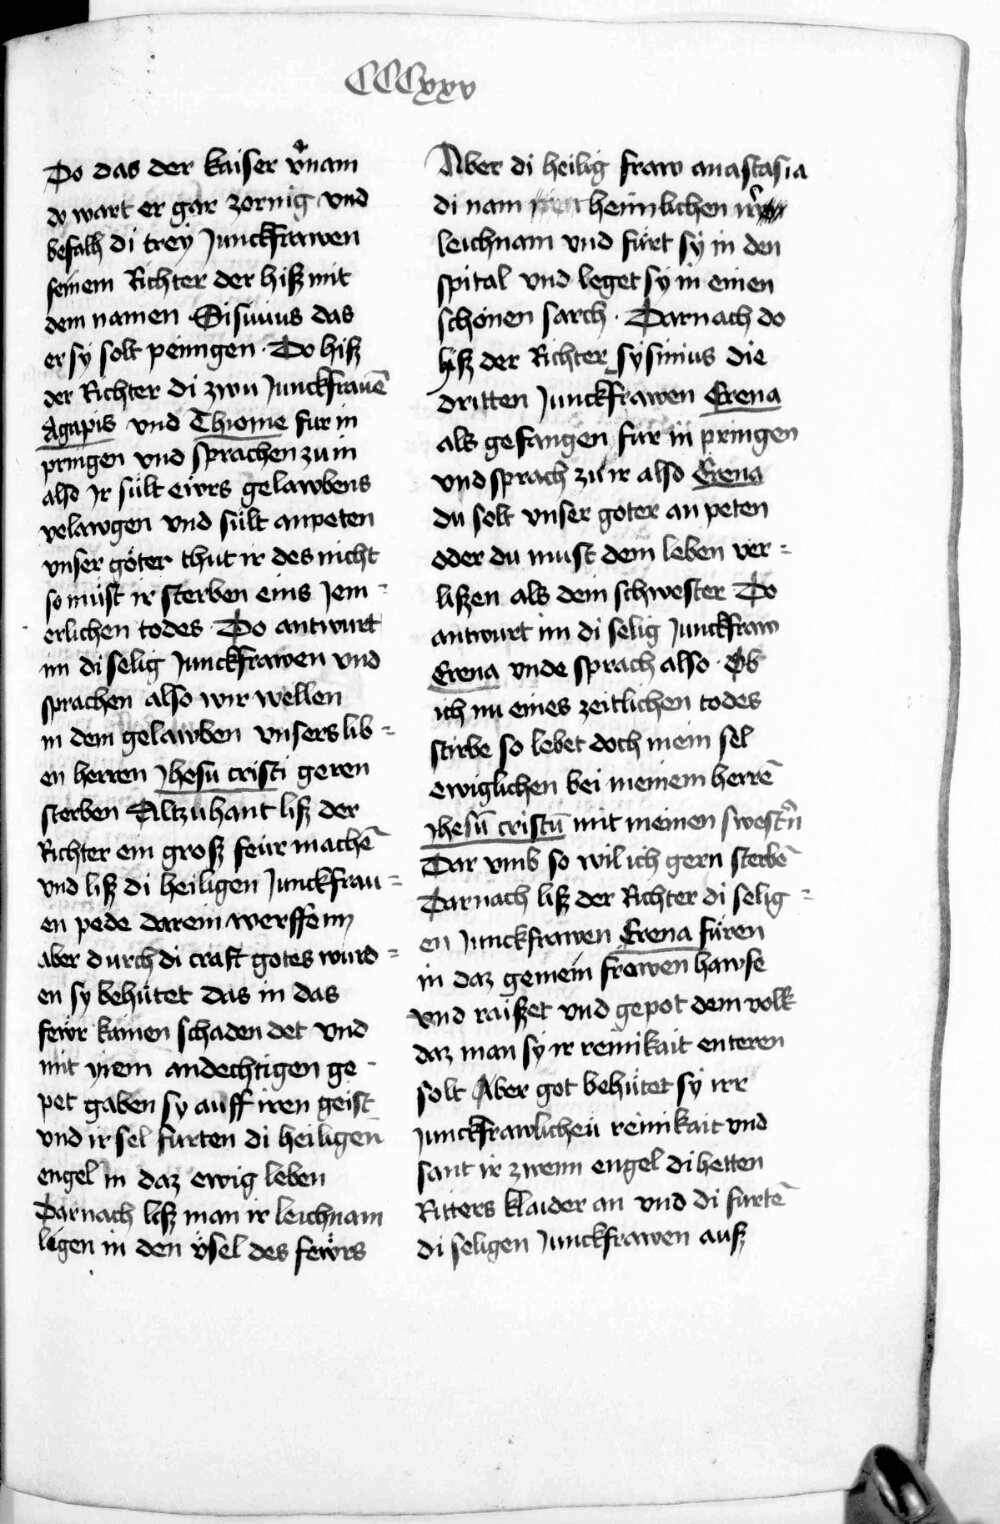 CCCxxv
Do das der kaiser v̾nam
do wart er gar zornig vnd
befalh di trey Junckfrawen
seinem Richter der hiß mit
dem namen Sisinius das
er sy solt peinigen · Do hiß
der Richter di zwu Junckfrauē
Agapis vnd Thiome fur in
pringen vnd sprachen zu in
also Ir sült ewrs gelawbens
velawgen vnd sült anpeten
vnser göter thut ir des nicht
so müst ir sterben eins Jem =
erlichen todes · Do antwurt
im di selig Junckfrawen vnd
sprachen also wir wellen
in dem gelawben vnsers lib =
en herren Jhesu cristi geren
sterben Altzuhant liß der
Richter ein groß feür machē
vnd liß di heiligen Junckfrau =
en pede darein werffenn
aber durch di craft gotes wurd =
en sy behütet das in das
fewr kainen schaden det vnd
mit yrem andechtigen ge -
pet gaben sy auff iren geist
vnd ir sel furten di heiligen
engel in daz ewig leben
Darnach liß man ir leichnam
ligen in den üsel des fewrs
Aber di heilig fraw anastasia
di nam heimlichen
leichnam vnd fürt sy in den
spital vnd leget sy in einen
schönen sarch · Darnach do
hiß der Richter sysinius die
dritten Junckfrawen Erena
als gefangen fur in pringen
vnd sprach zu ir also Erena
du solt vnser goter an peten
oder du must dein leben ver =
lißen als dein schwester Do
antwurt im di selig Junckfraw
Erena vnde sprach also · Ob
ich nu eines zeitlichen todes
stirbe so lebet doch mein sel
ewiglichen bei meinem herrē
Jhesū cristū mit meinen swest̾n
Dar vmb so wil ich gern sterbē
Darnach liß der Richter di selig =
en Junckfrawen Erena füren
in daz gemein frowen hawse
vnd raißet vnd gepot dem volk
daz man sy ir reinikait enteren
solt Aber got behütet sy irr
Junckfrawlichen reinikait vnd
sant ir zwenn engel di hetten
Ritters klaider an vnd di furtē
di seligen Junckfrawen auß